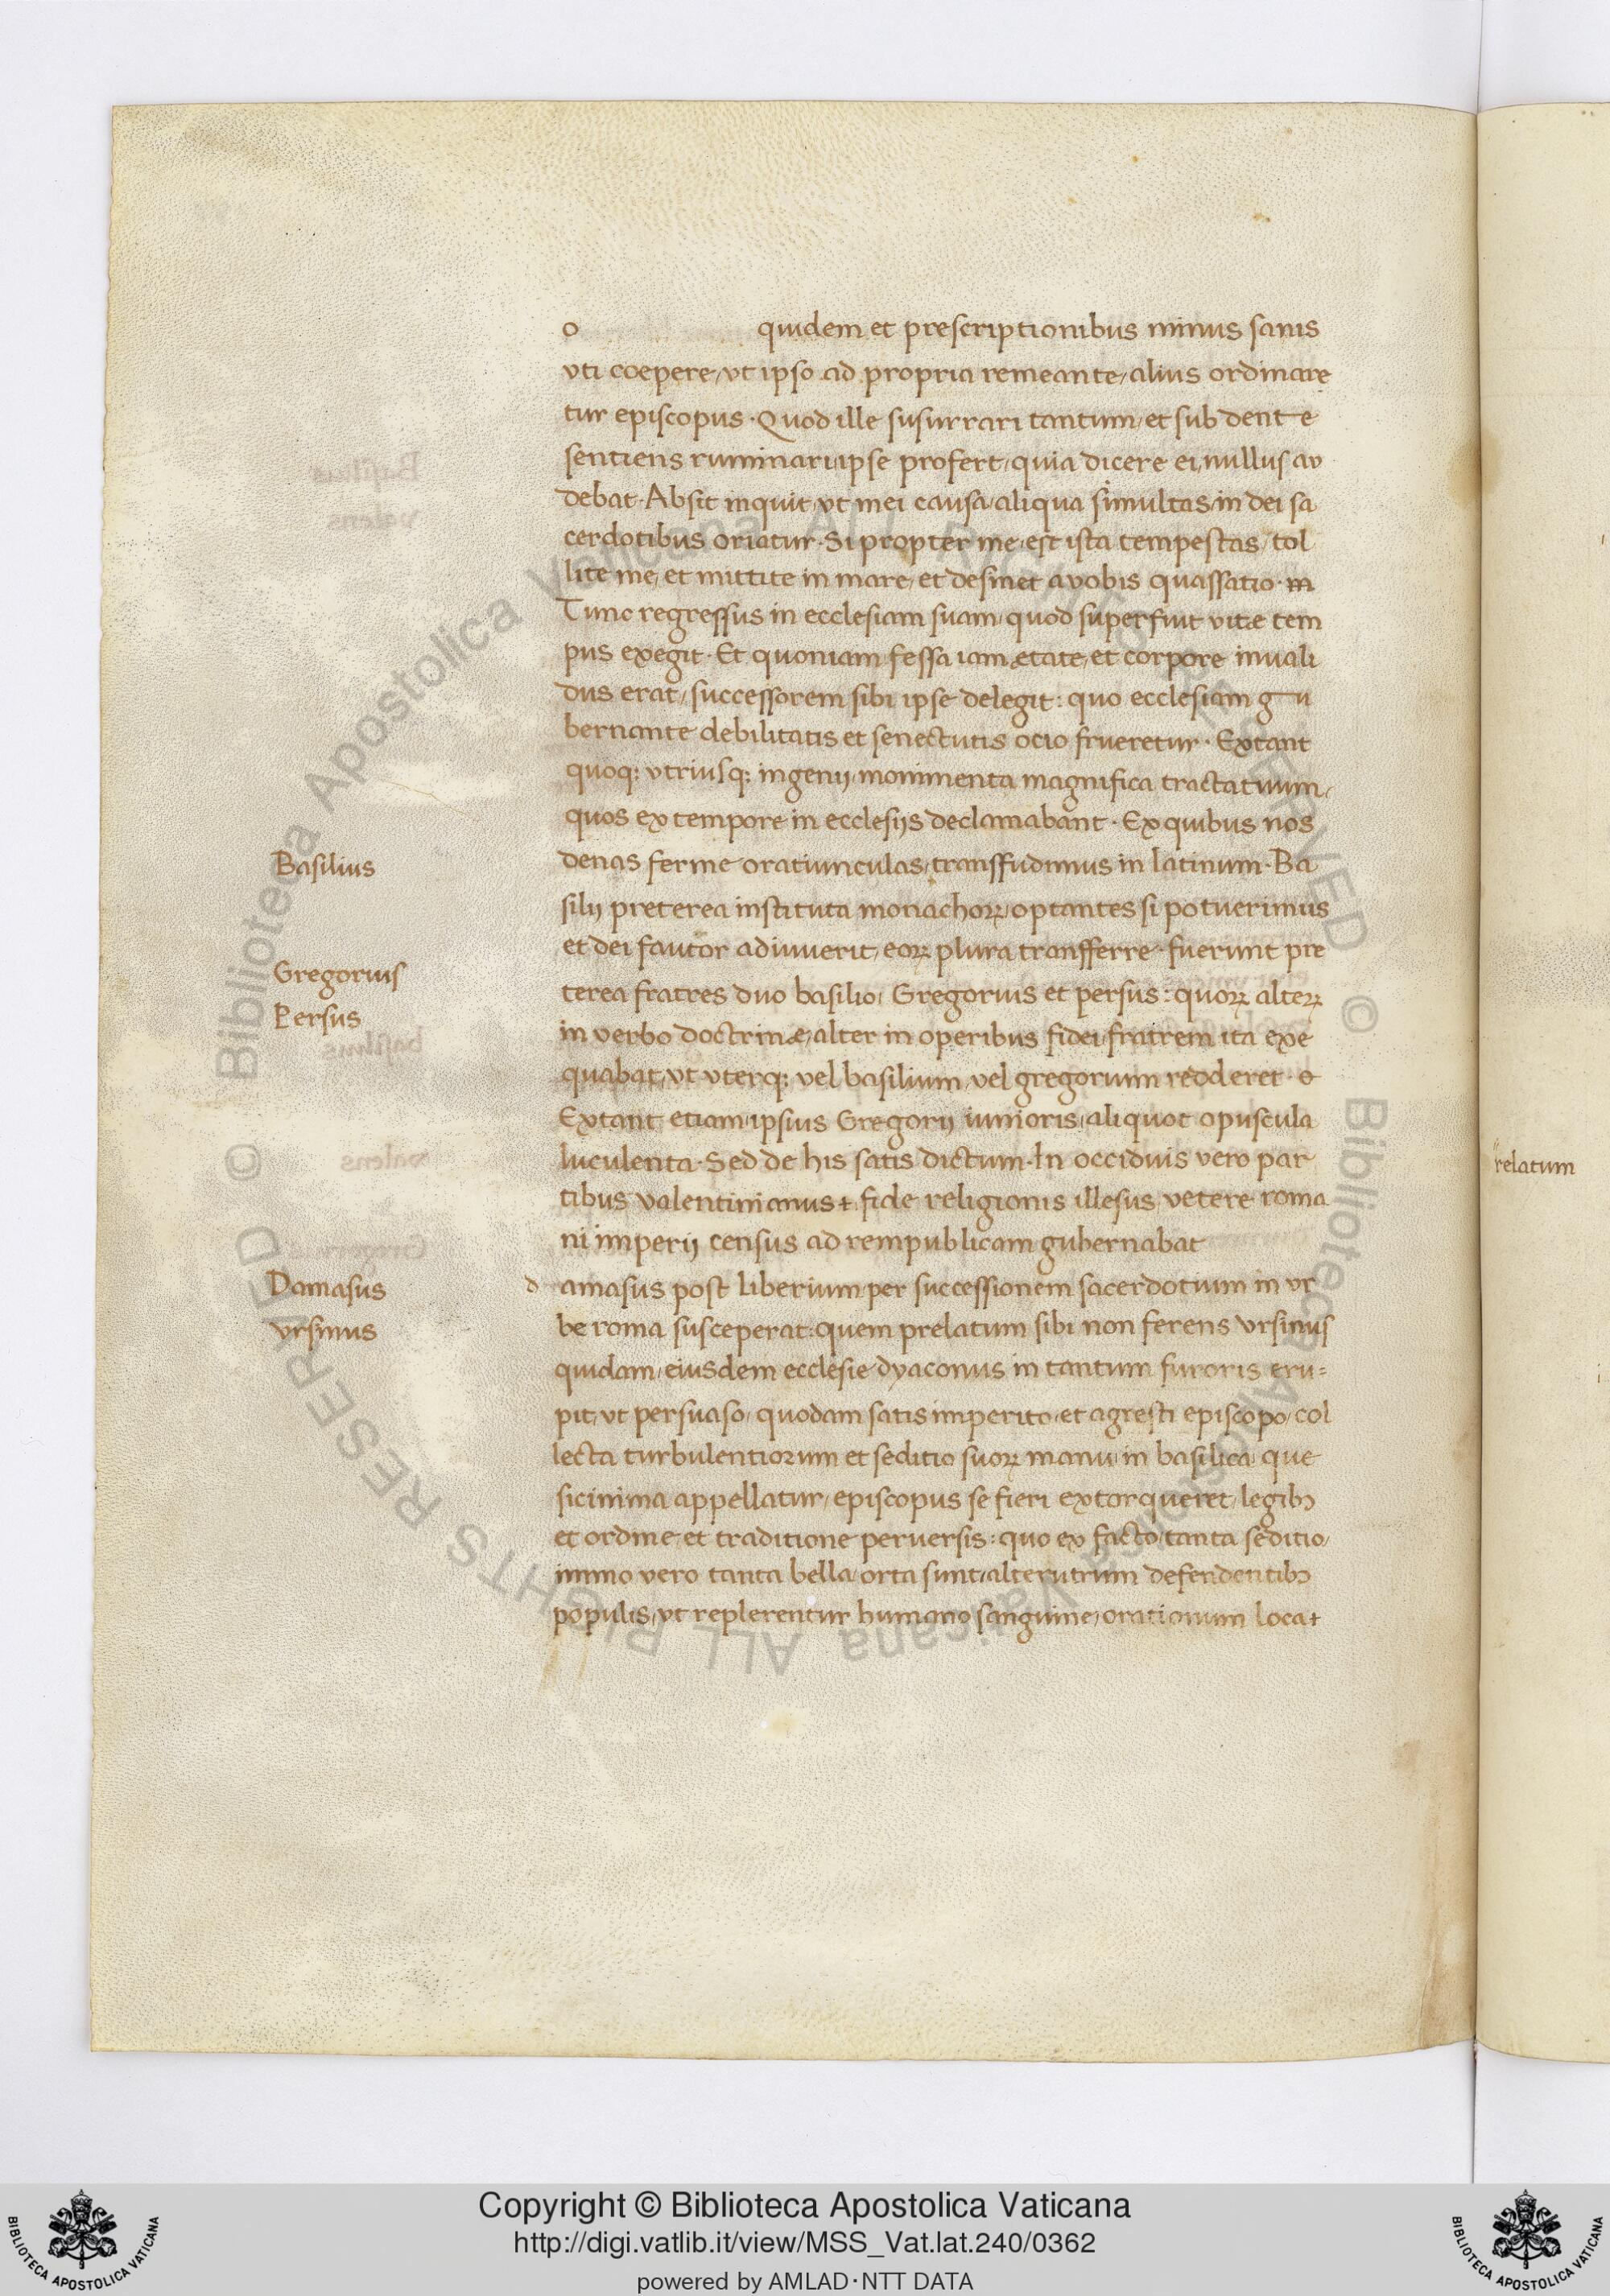 o quidem et prescriptionibus minus sanis
vti coepere, vt ipso ad propria remeante, alius ordinare
tur episcopus. Quod ille susurrari tantum, et sub dente
sentiens ruminari, ipse profert, quia dicere ei, nullus au
debat. Absit inquit, vt mei causa, aliqua simultas, in dei sa
cerdotibus oriatur. Si propter me, est ista tempestas, tol
lite me, et mittite in mare, et desinet a vobis quassatio. m
Tunc regressus in ecclesiam suam, quod superfuit vitæ tem
pus exegit. Et quoniam fessa iam ætate, et corpore inuali
dus erat, successorem sibi ipse delegit: quo ecclesiam gu
bernante debilitatis et senectutis ocio frueretur. Extant
quoq; vtriusq; ingenij, monimenta magnifica tractatuum,
quos ex tempore in ecclesijs declamabant. Ex quibus nos
Basilius
denas ferme oratiunculas, transfudimus in latinum. Ba
silij preterea instituta monachoꝝ, optantes si potuerimus
et dei fautor adiuuerit, eoꝝ plura transferre. fuerunt pre
Gregorius
Persus
terea fratres duo basilio, Gregorius et persus: quoꝝ alteꝝ
in verbo doctrinæ, alter in operibus fidei, fratrem ita exe
quabat, vt vterq; vel basilium, vel gregorium redderet. e
Extant, etiam, ipsius Gregorij iunioris, aliquot opuscula
luculenta. Sed de his satis dictum. In occiduis vero par
tibus valentinianus + fide religionis illesus, vetere roma
ni imperij census ad rempublicam gubernabat
Damasus
Vrsinus
d amasus post liberium per successionem sacerdotium in vr
be roma susceperat: quem prelatum sibi non ferens vrsinus
quidam, eiusdem ecclesie dyaconus in tantum furoris eru=
pit, vt persuaso, quodam satis imperito, et agresti episcopo, col
lecta turbulentiorum et seditio suoꝝ manu, in basilica, que
sicinima appellatur, episcopus se fieri extorqueret, legibꝫ
et ordine, et traditione peruersis: quo ex facto, tanta seditio,
immo vero tanta bella, orta sunt, alterutrum defendentibꝫ
populis, vt replerentur humano sanguine, orationum loca+
relatum
Copyright © Biblioteca Apostolica Vaticana
http://digi.vatlib.it/view/MSS_Vat.lat.240/0362
powered by AMLAD·NTT DATA
BIBLIOTECA APOSTOLICA VATICANA
BIBLIOTECA APOSTOLICA VATICANA
© Biblioteca Apostolica Vaticana ALL RIGHTS RESERVED © Biblioteca Apostolica Vaticana ALL RIGHTS RESERVED